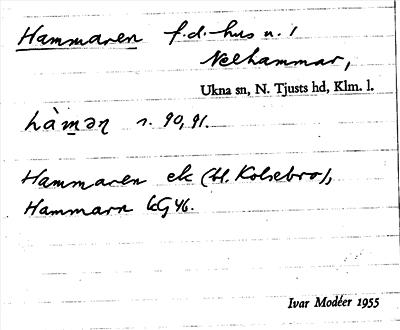 Hammaren f.d. hus u. 1
Nelhammar,
Ukna sn, N. Tjusts hd, Klm. l.
hàmən s. 90, 91.
Hammaren ek (bl. Kolsebro),
Hammarn kG 46.
Ivar Modéer 1955